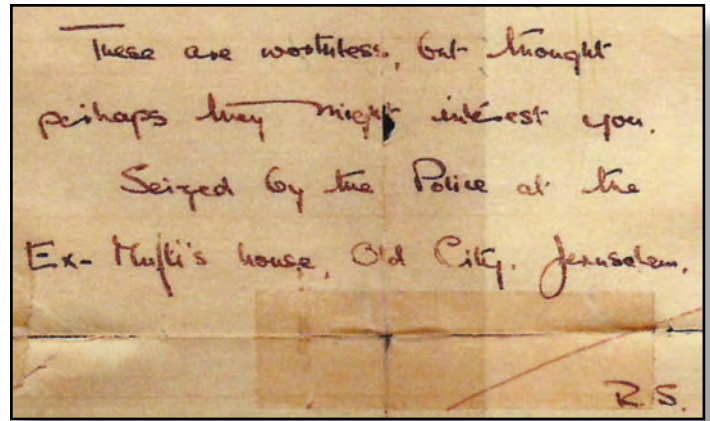 These are worthless, but thought
perhaps they might interest you.
Seized by the Police at the
Ex-Mufti's house, Old City, Jerusalem.
R.S.